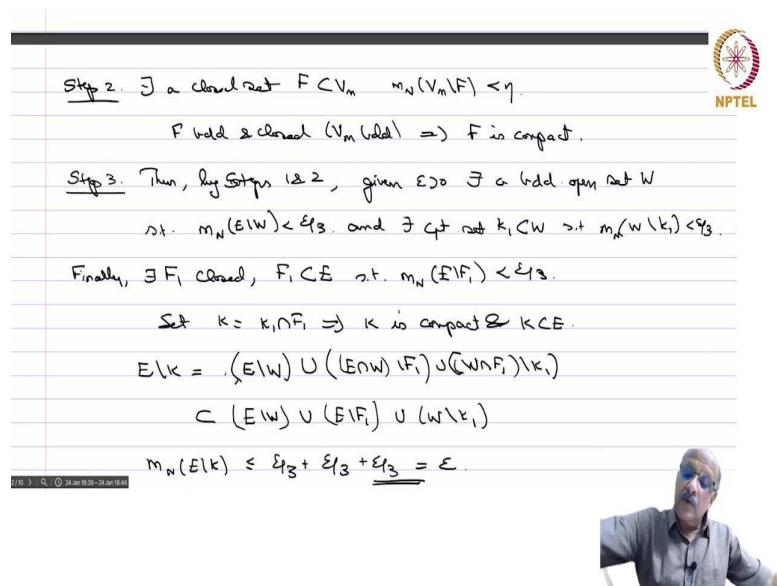 Step 2. ∃ a closed set F ⊂ Vₘ m_N(Vₘ\F) < η.
NPTEL
F bdd & closed (Vₘ bdd) ⇒ F is compact.
Step 3. Thus, by Steps 1 & 2, given ε>0 ∃ a bdd. open set W
s.t. m_N(E\W) < ε/3. and ∃ cpt set K₁ ⊂ W s.t m_N(W\K₁) < ε/3.
Finally, ∃ F₁ closed, F₁ ⊂ E s.t. m_N(E\F₁) < ε/3.
Set K = K₁∩F₁ ⇒ K is compact & K⊂E.
E\K = (E\W) ∪ ((E∩W)\F₁) ∪ ((W∩F₁)\K₁)
⊂ (E\W) ∪ (E\F₁) ∪ (W\K₁)
m_N(E\K) ≤ ε/3 + ε/3 + ε/3 = ε.
2/10 24 Jan 18:39 – 24 Jan 18:44